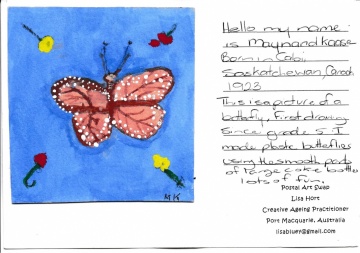 Hello my name
is Maynard Kaase
Born in Cabri,
Saskatchewan, Canada
1923
This is a picture of a
butterfly, first drawing
since grade 5. I
made plastic butterflies
using the smooth parts
of large coke bottles
lots of fun.
Postal Art Swap
Lisa Hort
Creative Ageing Practitioner
Port Macquarie, Australia
lisabluey@gmail.com
MK